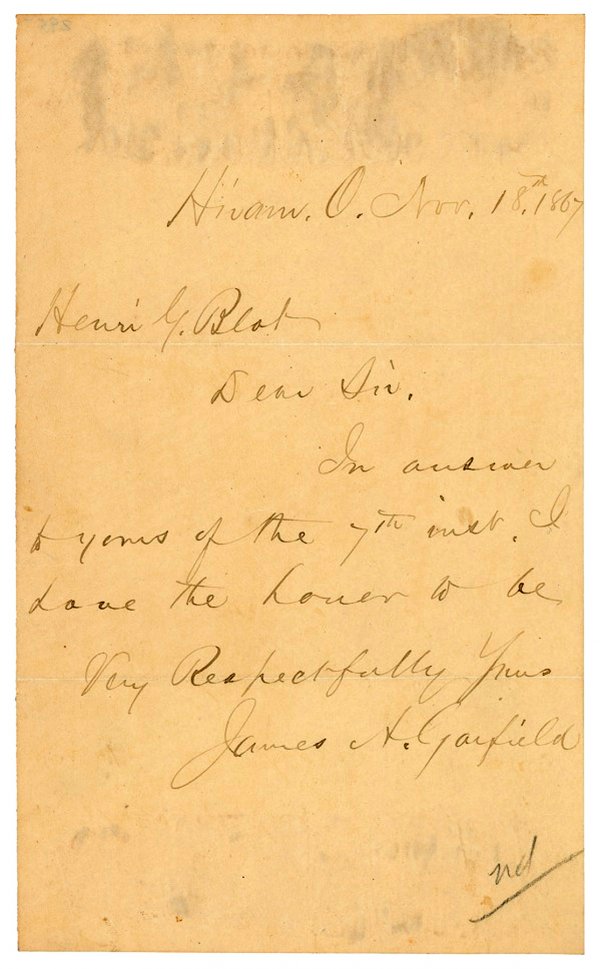 Hiram. O. Nov. 18.th 1867
Henri G. Blot
Dear Sir.
In answer
to yours of the 7th inst. I
have the honor to be
Very Respectfully Yours
James A. Garfield